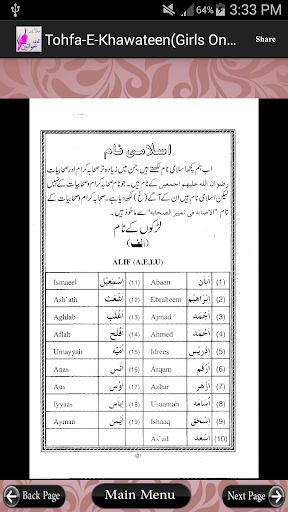 3:33 PM
Tohfa-E-Khawateen(Girls On...
Share
اسلامی نام
اب ہم کچھ اسلامی نام لکھتے ہیں، جن میں زیادہ تر صحابہ کرام اور صحابیات
رضوان الله علیهم اجمعین کے نام ہیں۔ جو نام صحابہ کرام و صحابیات کے نہیں
ہیں ان کے آگے لکھ دیا ہے۔ صحابہ کرام و صحابیات کے
نام "الاصابه فی تمییز الصحابه" سے ماخوذ ہیں۔
لڑکوں کے نام
(الف)
ALIF (A,E,I,U)
Ismaeel اِسْمٰعِیْل (11) Abaan أَبَان (1)
Ash`ath اَشْعَث (12) Ebraheem اِبْرَاهِیْم (2)
Aghlab اَغْلَب (13) Ajmad اَجْمَد (3)
Aflah اَفْلَح (14) Ahmed اَحْمَد (4)
Umayyah اُمَیَّه (15) Idrees اِدْرِیْس (5)
Anas اَنَس (16) Arqam اَرْقَم (6)
Aus اَوْس (17) Azhar اَزْهَر (7)
Iyyaas اِیَاس (18) Usaamah اُسَامَه (8)
Ayman اَیْمَن (19) Ishaaq اِسْحٰق (9)
As`ad اَسْعَد (10)
Back Page
Main Menu
Next Page